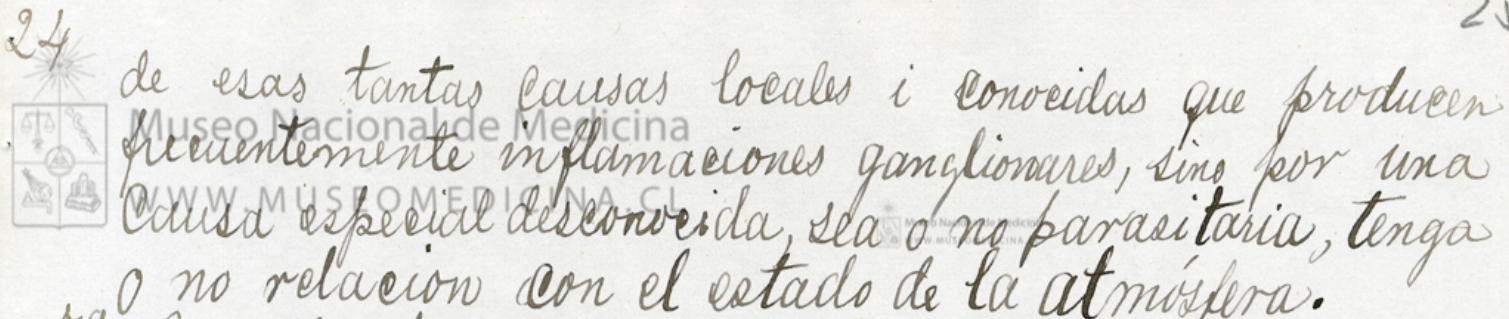 24
de esas tantas causas locales i conocidas que producen
frecuentemente inflamaciones ganglionares, sino por una
Causa especial desconocida, sea o no parasitaria, tenga
o no relacion con el estado de la atmósfera.
Museo Nacional de Medicina
WWW.MUSEOMEDICINA.CL